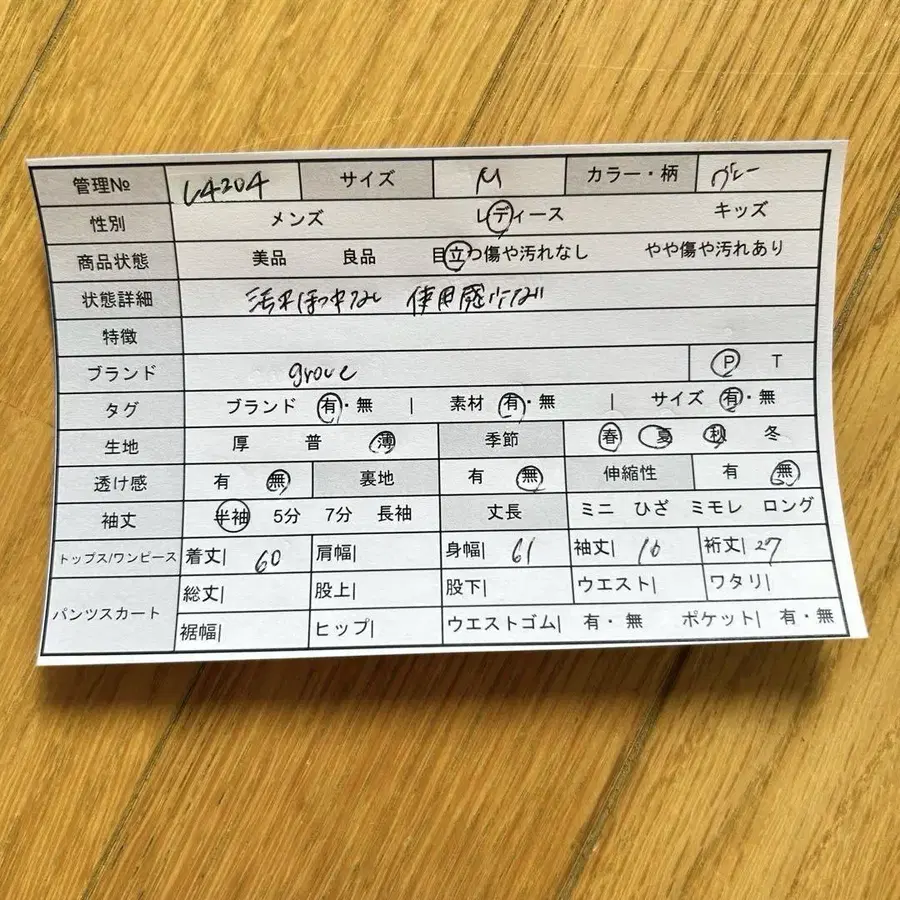 管理№ L4204 サイズ M カラー・柄 グレー
性別 メンズ レディース キッズ
商品状態 美品 良品 目立つ傷や汚れなし やや傷や汚れあり
状態詳細 汚れほつれなし 使用感
特徴
ブランド grove P T
タグ ブランド 有・無 | 素材 有・無 | サイズ 有・無
生地 厚 普 薄 季節 春 夏 秋 冬
透け感 有 無 裏地 有 無 伸縮性 有 無
袖丈 半袖 5分 7分 長袖 丈長 ミニ ひざ ミモレ ロング
トップス/ワンピース 着丈| 60 肩幅| 身幅| 61 袖丈| 16 裄丈| 27
パンツスカート 総丈| 股上| 股下| ウエスト| ワタリ|
裾幅| ヒップ| ウエストゴム| 有・無 ポケット| 有・無